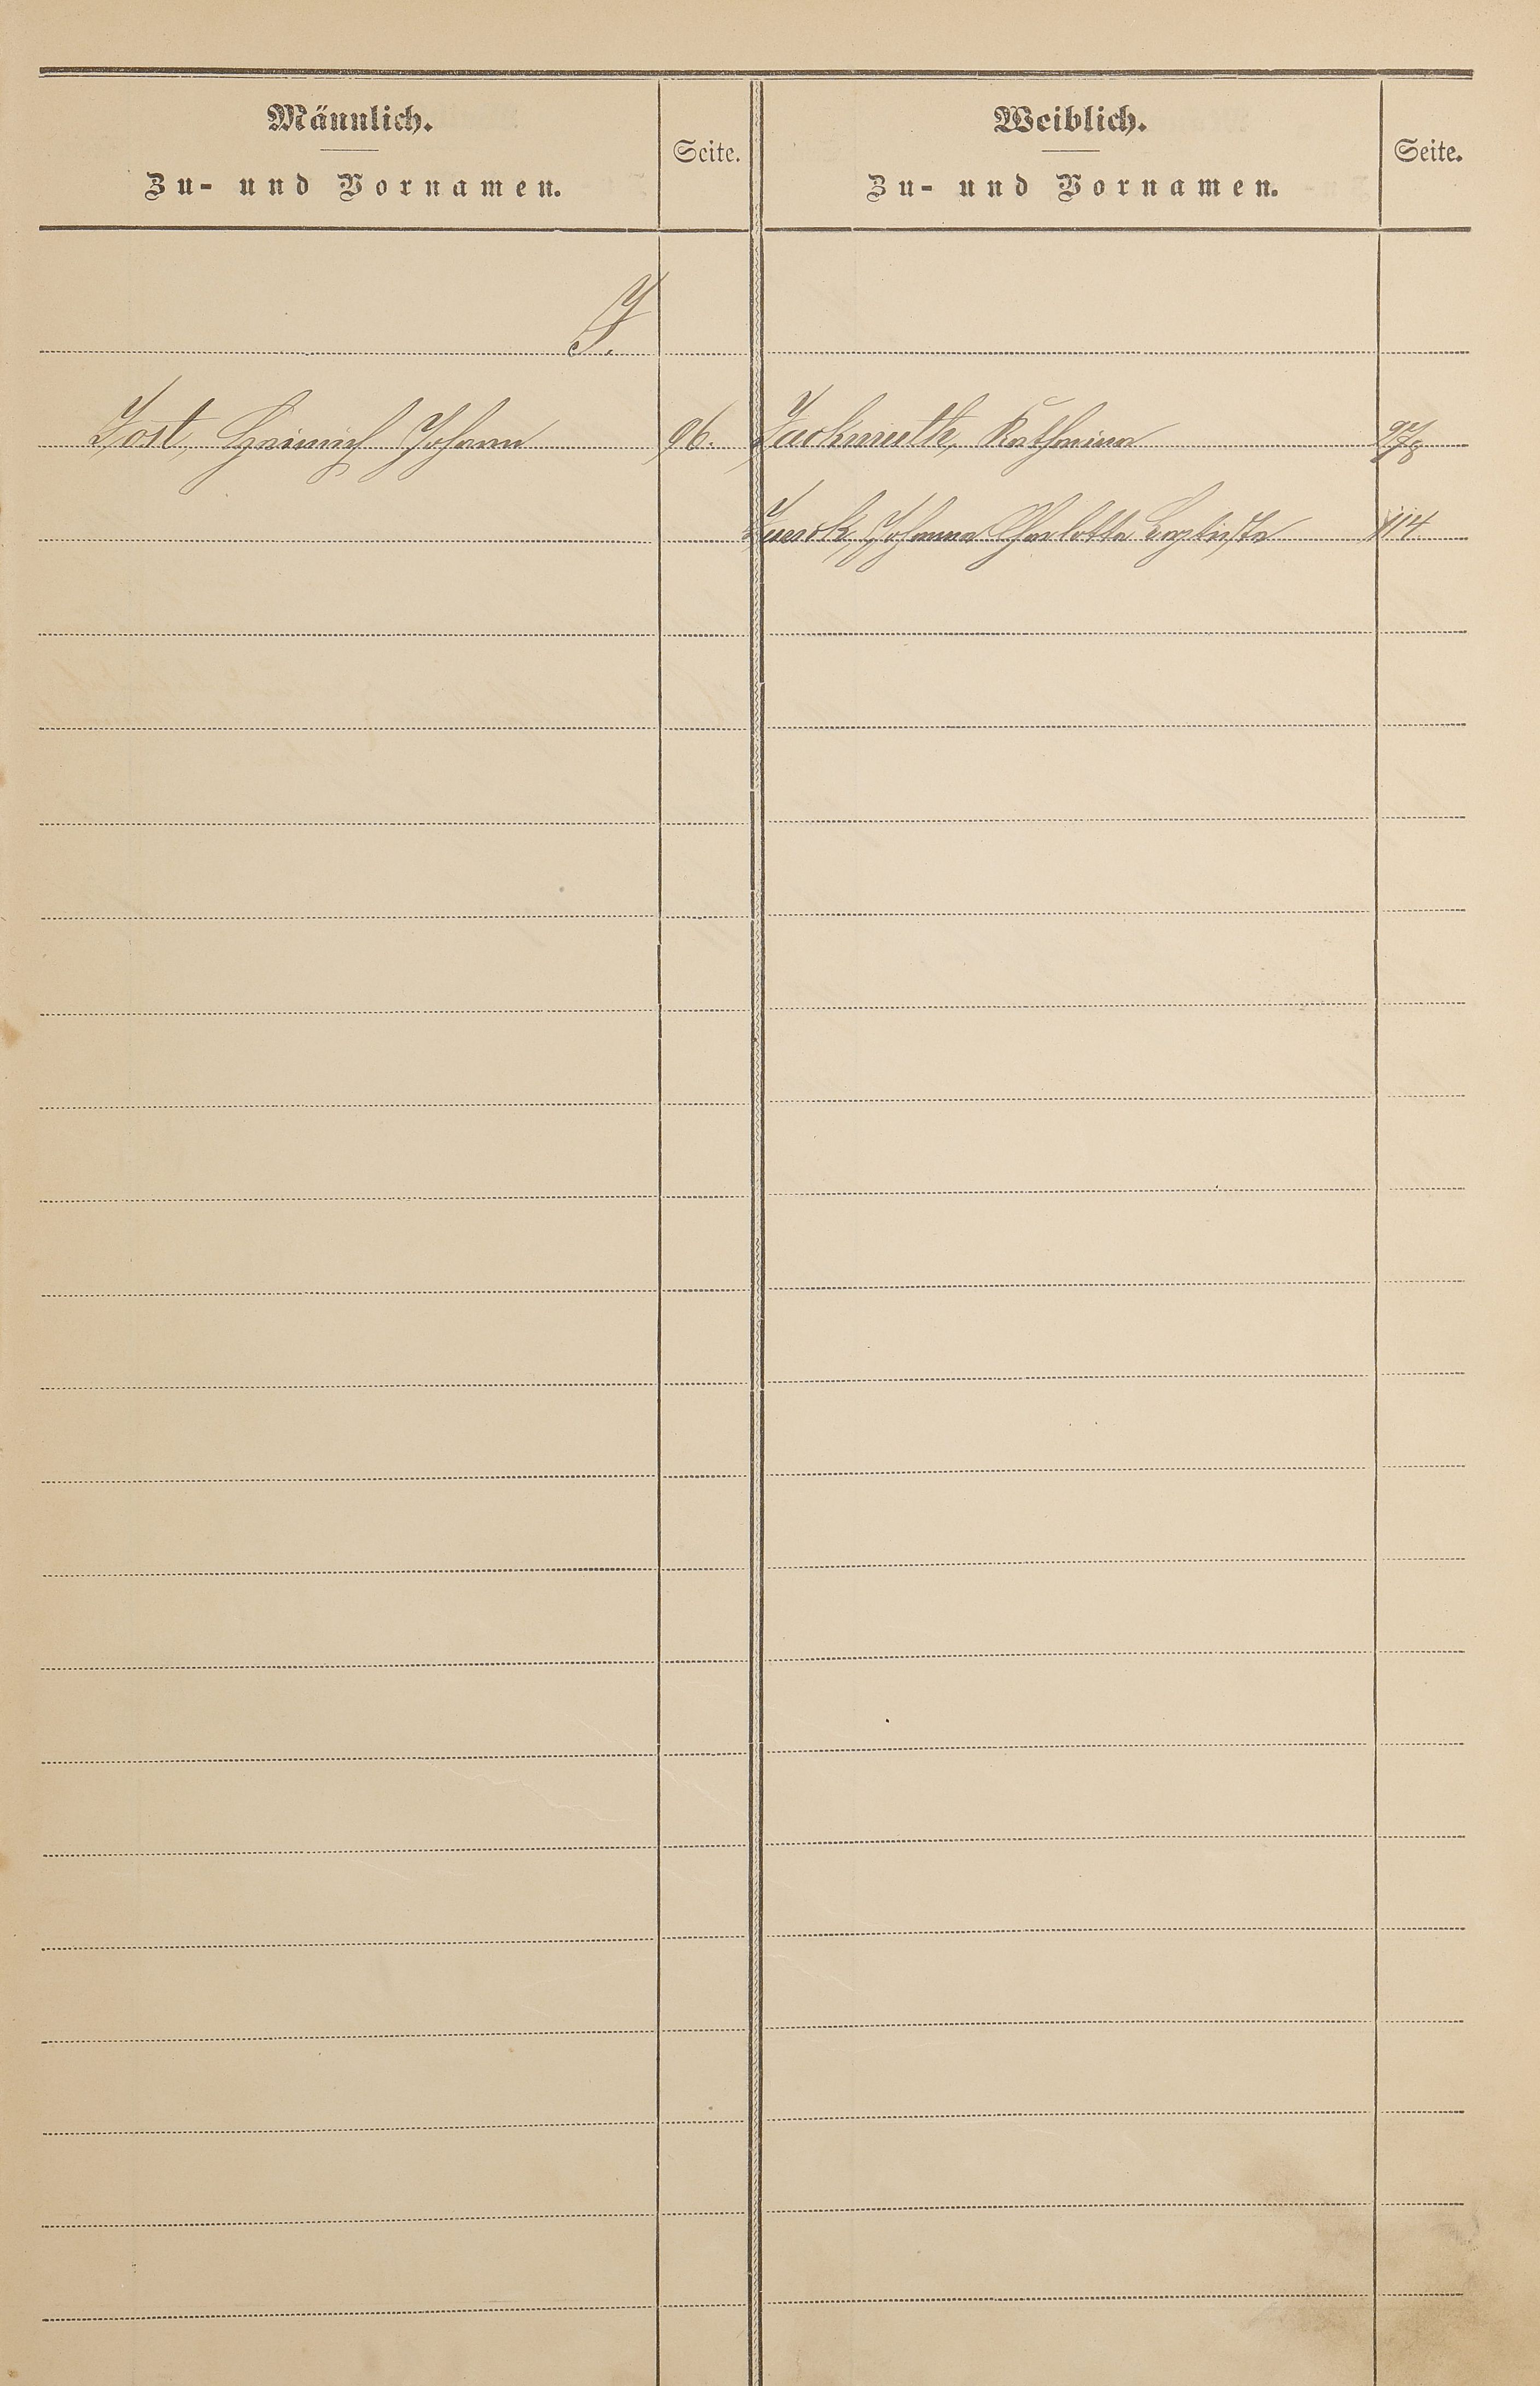 Männlich.
Zu- und Vornamen.
Seite.
Weiblich.
Zu- und Vornamen.
Seite.
J.
Jost, Heinrich Johann
96.
Jackmuth, Katharina
Johanna Charlotte
114.